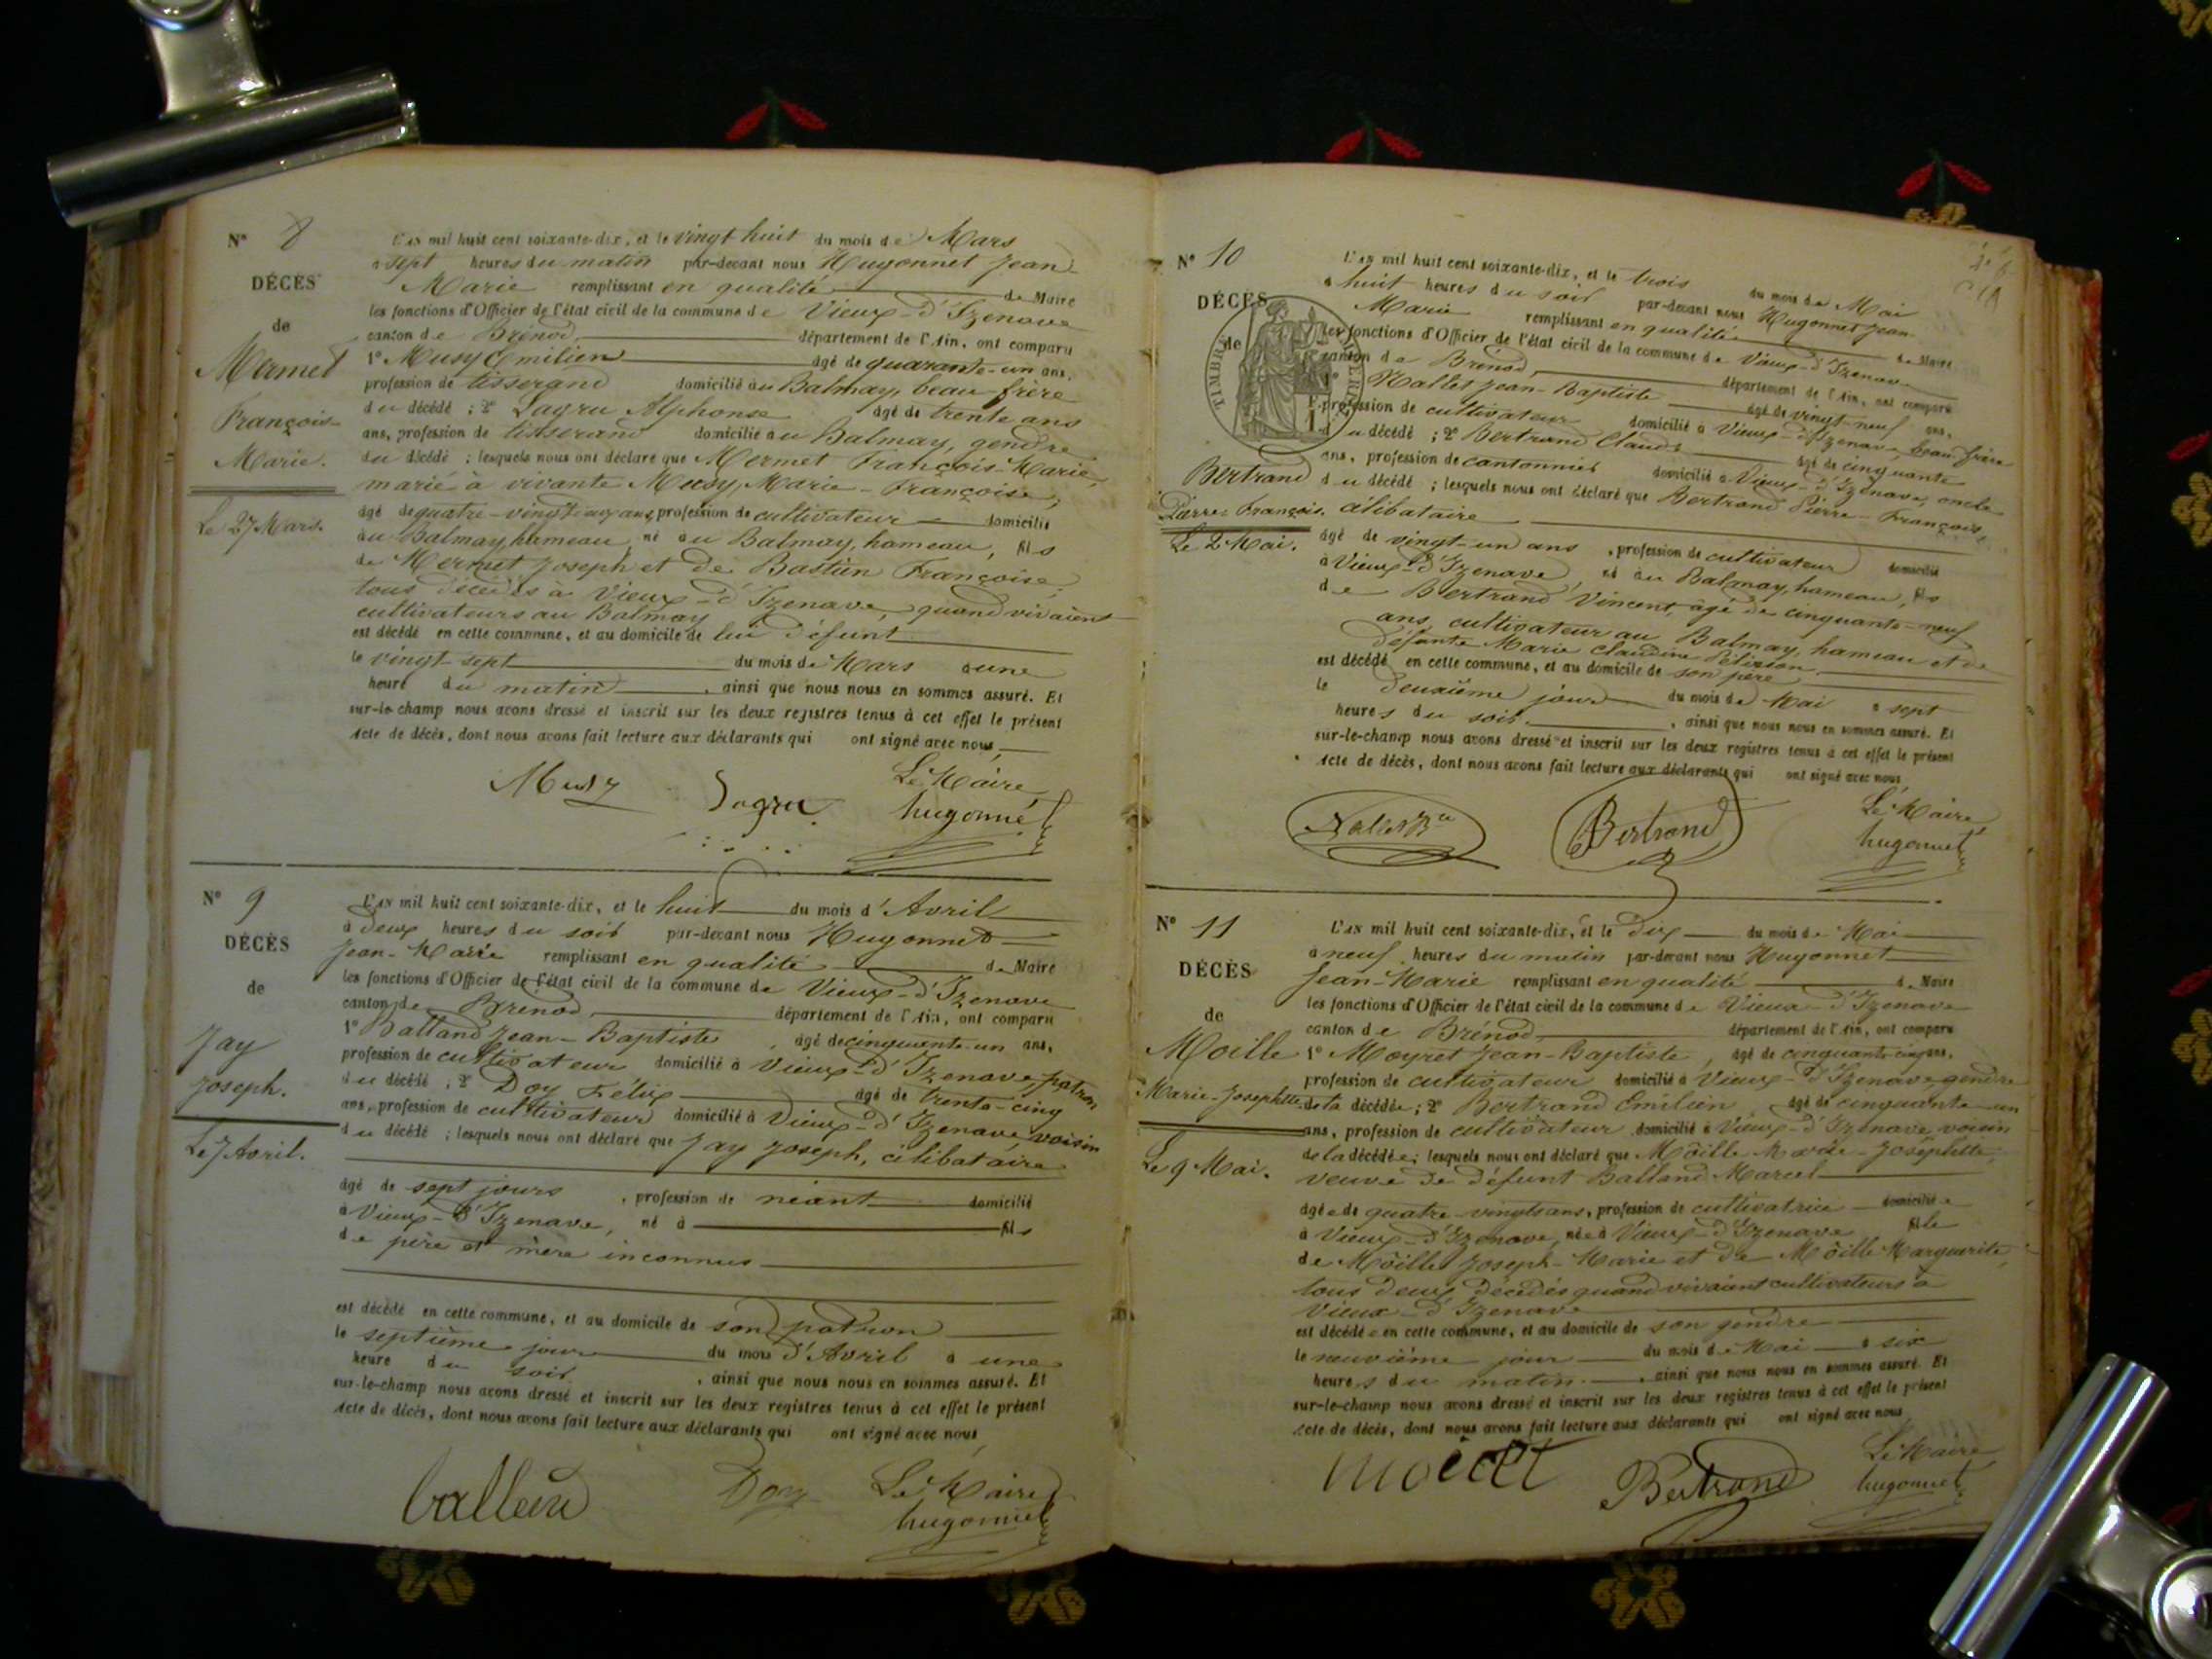 N° 8
DÉCÈS
de
Mermet
François
Marie.
Le 27 Mars.
L'AN mil huit cent soixante-dix, et le vingt huit du mois de Mars
à sept heures du matin par-devant nous Hugonnet Jean
Marie remplissant en qualité de Maire
les fonctions d'Officier de l'état civil de la commune de Vieux-d'Izenave
canton de Brénod, département de l'Ain, ont comparu
1° Musy Emilien âgé de quarante-un ans,
profession de tisserand domicilié au Balmay, beau frère
du décédé ; 2° Lagru Alphonse âgé de trente ans
ans, profession de tisserand domicilié au Balmay, gendre
du décédé ; lesquels nous ont déclaré que Mermet François-Marie,
marié à vivante Musy, Marie-Françoise,
âgé de quatre-vingt ans, profession de cultivateur domicilié
au Balmay, hameau, né au Balmay, hameau, fils
de Mermet Joseph et de Bastien Françoise,
tous décédés à Vieux-d'Izenave, quand vivaient
cultivateurs au Balmay
est décédé en cette commune, et au domicile de lui défunt
le vingt-sept du mois de Mars à une
heure du matin, ainsi que nous nous en sommes assuré. Et
sur-le-champ nous avons dressé et inscrit sur les deux registres tenus à cet effet le présent
Acte de décès, dont nous avons fait lecture aux déclarants qui ont signé avec nous
Musy Lagru Le Maire
hugonnet
N° 9
DÉCÈS
de
Jay
Joseph.
Le 7 Avril.
L'AN mil huit cent soixante-dix, et le huit du mois d'Avril
à deux heures du soir par-devant nous Hugonnet
Jean-Marie remplissant en qualité de Maire
les fonctions d'Officier de l'état civil de la commune de Vieux-d'Izenave
canton de Brénod, département de l'Ain, ont comparu
1° Balland Jean-Baptiste, âgé de cinquante-un ans,
profession de cultivateur domicilié à Vieux-d'Izenave, patron
du décédé ; 2° Doy Félix âgé de trente-cinq
ans, profession de cultivateur domicilié à Vieux-d'Izenave, voisin
du décédé ; lesquels nous ont déclaré que Jay Joseph, célibataire
âgé de sept jours, profession de néant domicilié
à Vieux-d'Izenave, né à fils
de père et mère inconnus
est décédé en cette commune, et au domicile de son patron
le septième jour du mois d'Avril à une
heure du soir, ainsi que nous nous en sommes assuré. Et
sur-le-champ nous avons dressé et inscrit sur les deux registres tenus à cet effet le présent
Acte de décès, dont nous avons fait lecture aux déclarants qui ont signé avec nous
balland Doy Le Maire
hugonnet
N° 10
DÉCÈS
de
TIMBRE
Bertrand
Pierre-François.
Le 2 Mai.
L'AN mil huit cent soixante-dix, et le trois du mois de Mai
à huit heures du soir par-devant nous Hugonnet Jean-
Marie remplissant en qualité de Maire
les fonctions d'Officier de l'état civil de la commune de Vieux-d'Izenave
canton de Brénod, département de l'Ain, ont comparu
1° Nallet Jean-Baptiste âgé de vingt-neuf ans,
profession de cultivateur domicilié à Vieux-d'Izenave, beau-frère
du décédé ; 2° Bertrand Claude âgé de cinquante
ans, profession de cantonnier domicilié à Vieux-d'Izenave, oncle
du décédé ; lesquels nous ont déclaré que Bertrand Pierre-François,
célibataire
âgé de vingt-un ans, profession de cultivateur domicilié
à Vieux-d'Izenave, né au Balmay, hameau, fils
de Bertrand Vincent, âgé de cinquante-neuf
ans, cultivateur au Balmay, hameau et de
défunte Marie Claudine
est décédé en cette commune, et au domicile de son père
le deuxième jour du mois de Mai à sept
heures du soir, ainsi que nous nous en sommes assuré. Et
sur-le-champ nous avons dressé et inscrit sur les deux registres tenus à cet effet le présent
Acte de décès, dont nous avons fait lecture aux déclarants qui ont signé avec nous
Nallet Bte Bertrand Le Maire
hugonnet
N° 11
DÉCÈS
de
Moille
Marie-Josephte
Le 9 Mai.
L'AN mil huit cent soixante-dix, et le dix du mois de Mai
à neuf heures du matin par-devant nous Hugonnet
Jean-Marie remplissant en qualité de Maire
les fonctions d'Officier de l'état civil de la commune de Vieux-d'Izenave
canton de Brénod, département de l'Ain, ont comparu
1° Moyret Jean-Baptiste, âgé de cinquante-cinq ans,
profession de cultivateur domicilié à Vieux-d'Izenave, gendre
de la décédée ; 2° Bertrand Emilien, âgé de cinquante-un
ans, profession de cultivateur domicilié à Vieux-d'Izenave, voisin
de la décédée ; lesquels nous ont déclaré que Möille Marie-Josephtte,
veuve de défunt Balland Marcel
âgée de quatre-vingts ans, profession de cultivatrice domiciliée
à Vieux-d'Izenave, née à Vieux-d'Izenave fille
de Möille Joseph-Marie et de Möille Marguerite,
tous deux décédés quand vivaient cultivateurs à
Vieux-d'Izenave
est décédée en cette commune, et au domicile de son gendre
le neuvième jour du mois de Mai à six
heures du matin, ainsi que nous nous en sommes assuré. Et
sur-le-champ nous avons dressé et inscrit sur les deux registres tenus à cet effet le présent
Acte de décès, dont nous avons fait lecture aux déclarants qui ont signé avec nous
Bertrand Le Maire
hugonnet